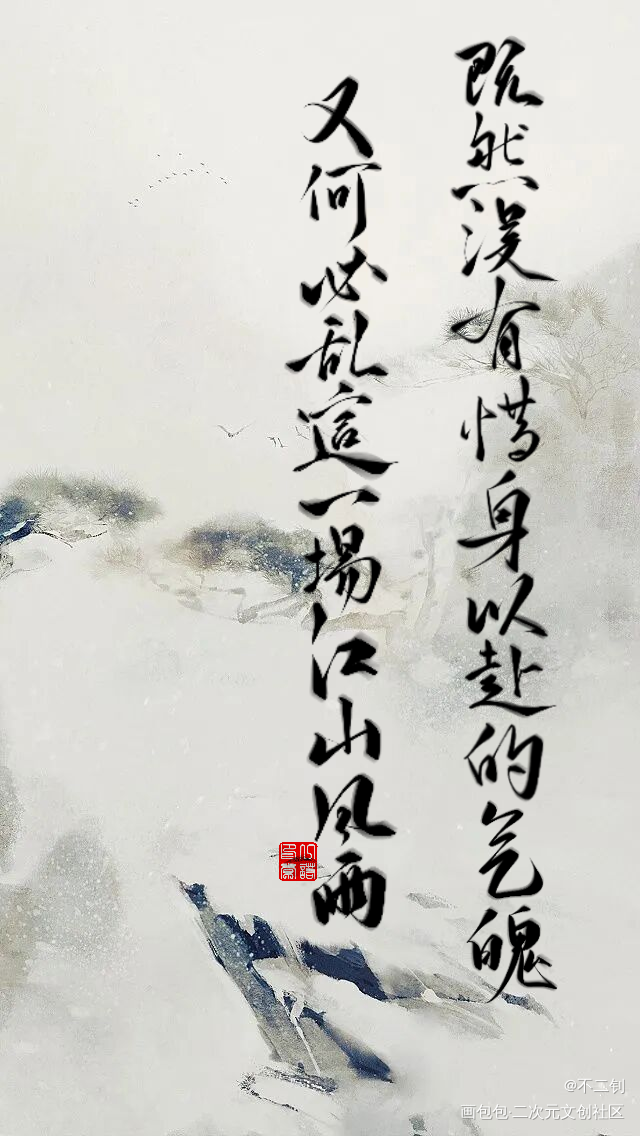 既然没有惜身以赴的气魄
又何必乱这一场江山风雨
@不二钊
画包包·二次元文创社区